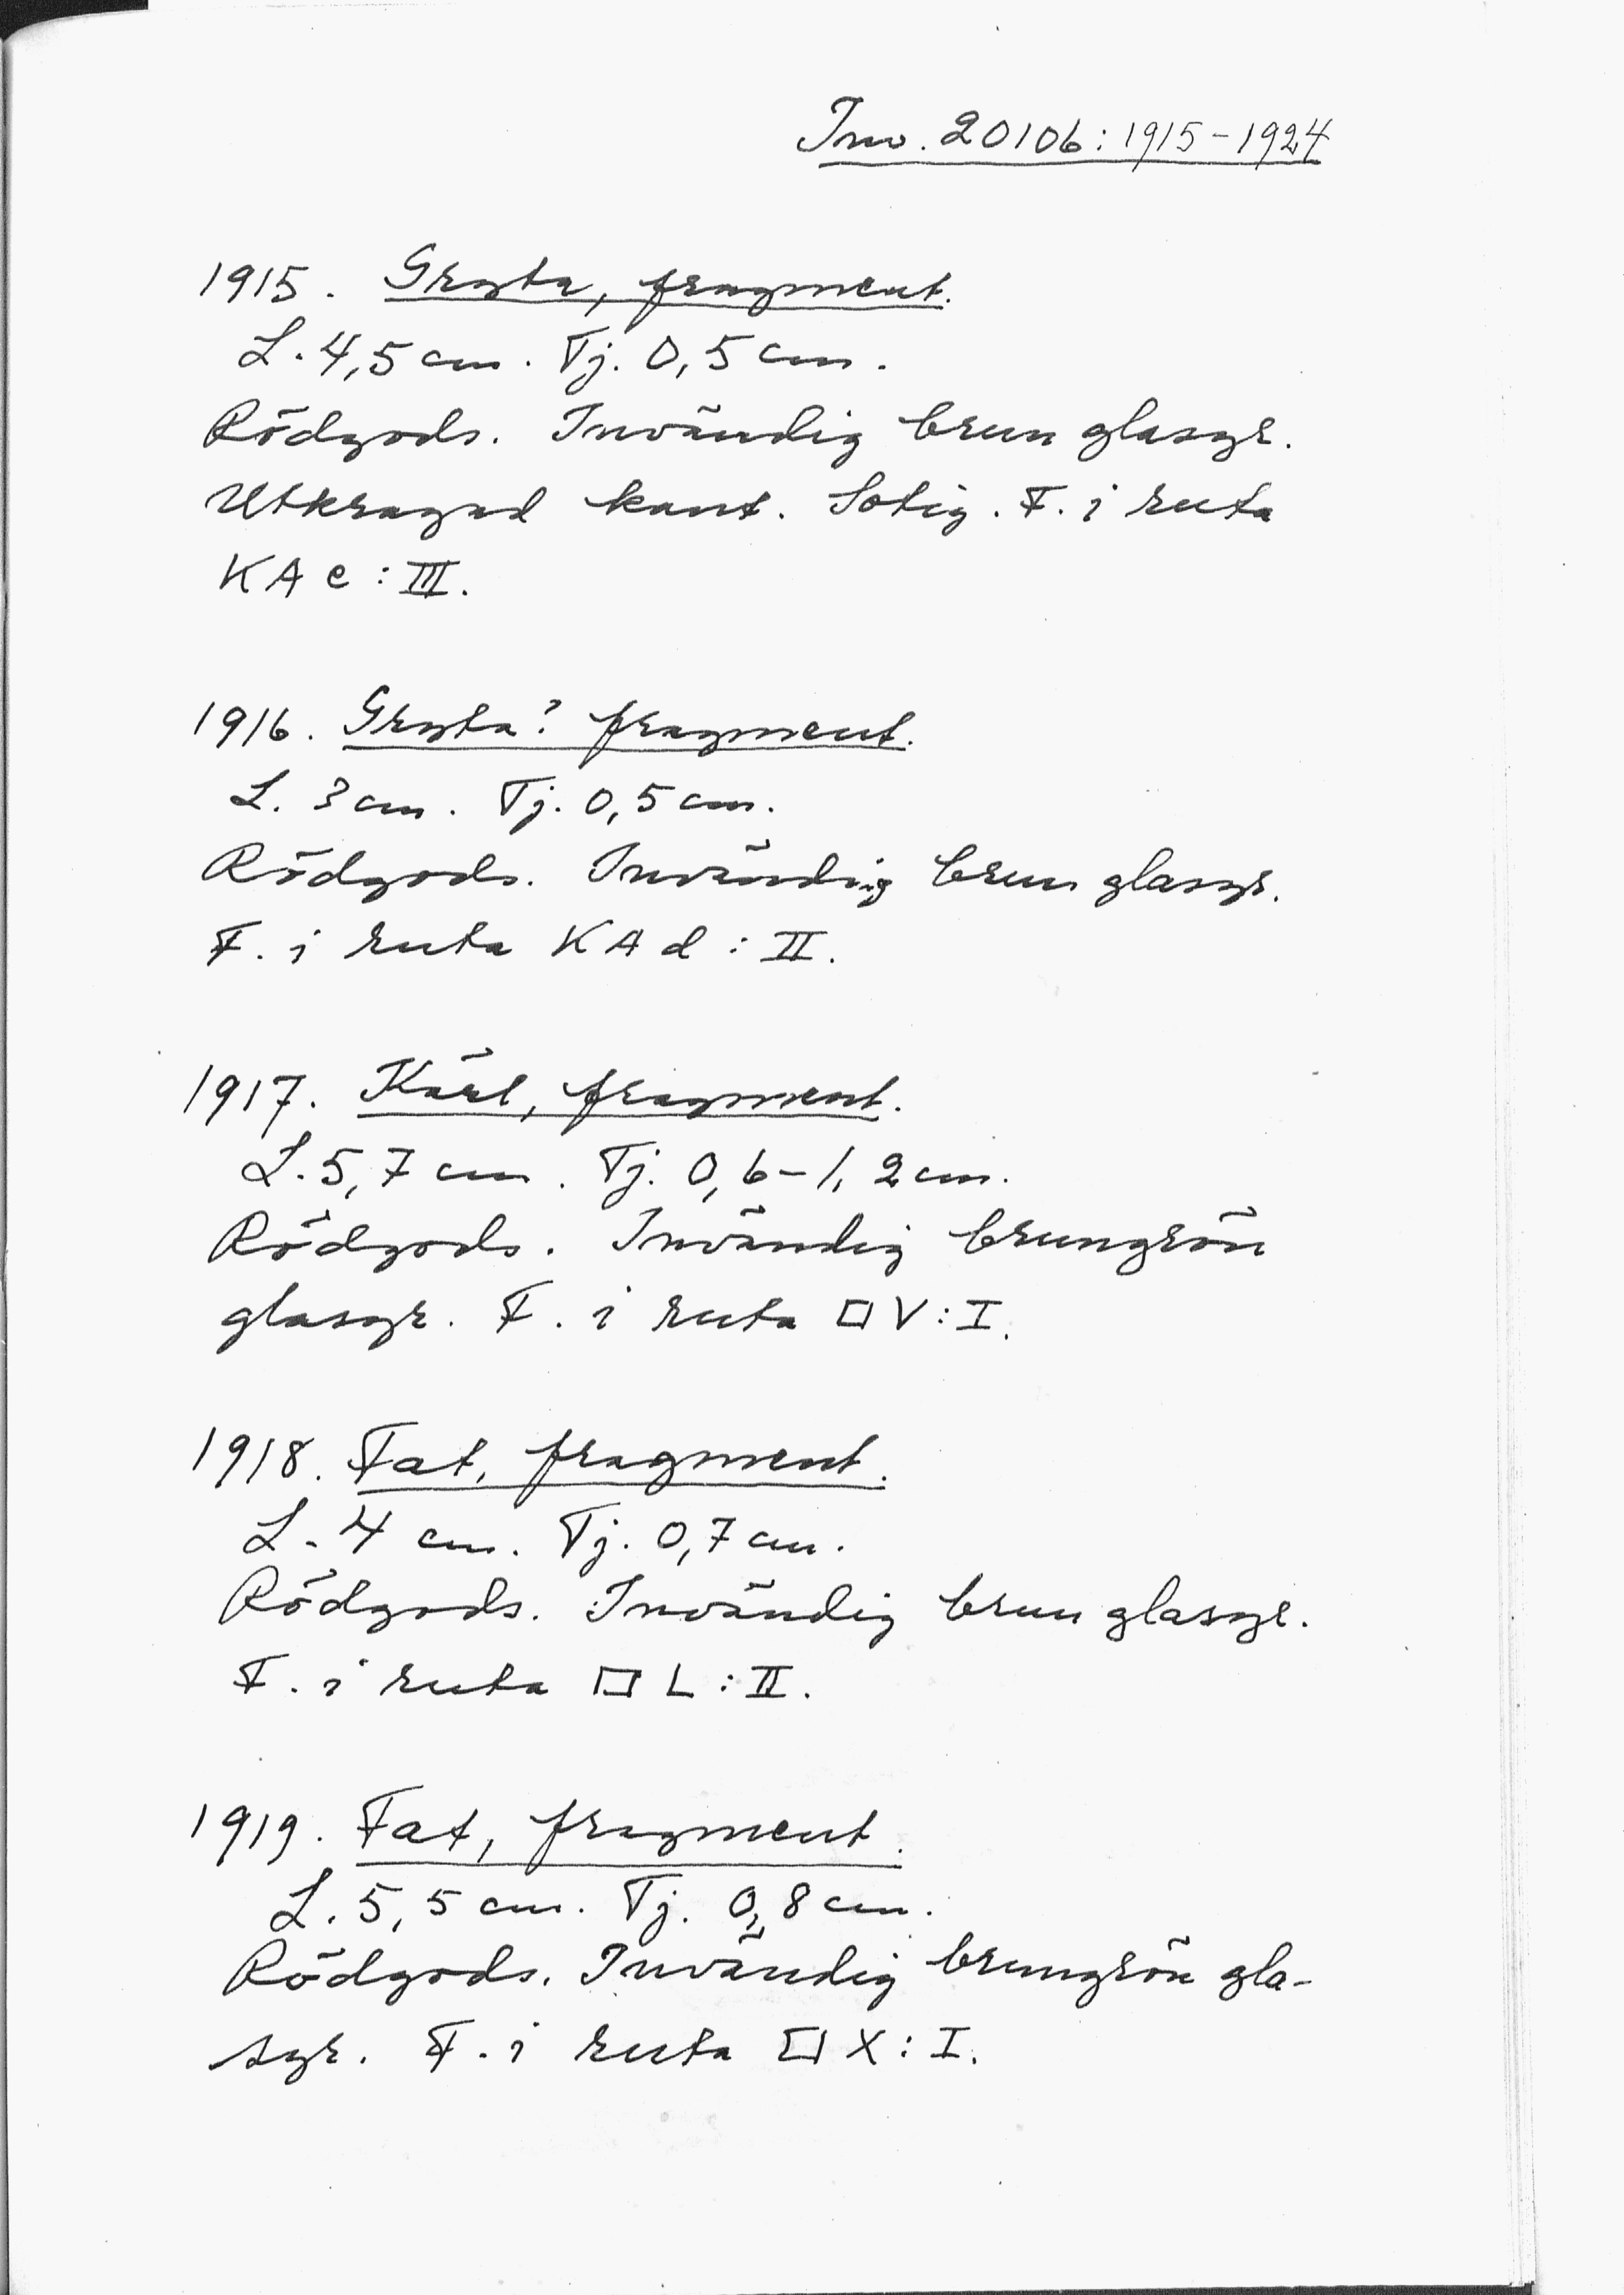 Inv. 20106:1915-1924
1915. Gryta, fragment.
L. 4,5 cm. Tj. 0,5 cm.
Rödgods. Invändig brun glasyr.
Utkragad kant. Sotig. F. i ruta
KA c : III.
1916. Gryta? fragment.
L. 3 cm. Tj. 0,5 cm.
Rödgods. Invändig brun glasyr.
F. i ruta KA d : II.
1917. Kärl, fragment.
L. 5,7 cm. Tj. 0,6-1,2 cm.
Rödgods. Invändig brungrön
glasyr. F. i ruta □ V : I.
1918. Fat, fragment.
L. 4 cm. Tj. 0,7 cm.
Rödgods. Invändig brun glasyr.
F. i ruta □ L : II.
1919. Fat, fragment.
L. 5,5 cm. Tj. 0,8 cm.
Rödgods. Invändig brungrön gla-
syr. F. i ruta □ X : I.